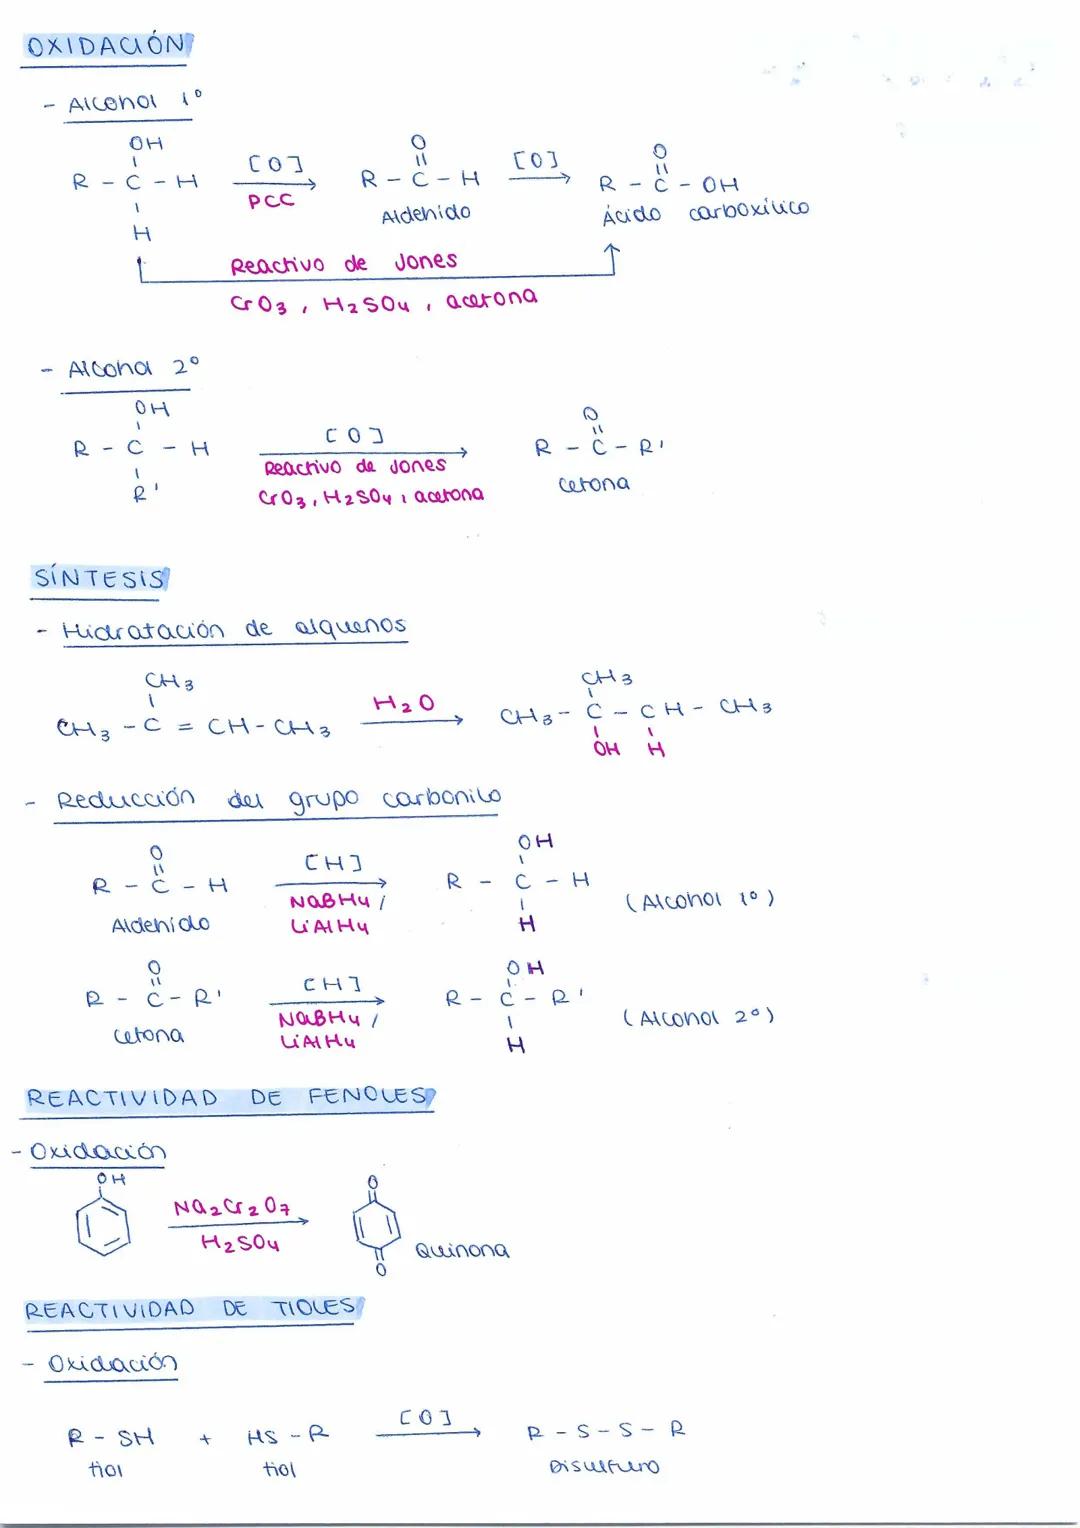 OXIDACIÓN
- Alcohol 1º
OH
R - C - H
H
[O]
PCC
O
R - C - H
Aldehido
[O]
O
R - C - OH
Ácido carboxílico
Reactivo de Jones
CrO3, H2SO4, acetona
- Alcohol 2º
OH
R - C - H
R'
[O]
Reactivo de Jones
CrO3, H2SO4, acetona
O
R - C - R'
cetona
SÍNTESIS
- Hidratación de alquenos
CH3
CH3 - C = CH - CH3
H2O
CH3
CH3 - C - CH - CH3
OH H
- Reducción del grupo carbonilo
O
R - C - H
Aldehido
[H]
NaBH4 /
LiAlH4
OH
R - C - H
H
(Alcohol 1º)
O
R - C - R'
cetona
[H]
NaBH4 /
LiAlH4
OH
R - C - R'
H
(Alcohol 2º)
REACTIVIDAD DE FENOLES
- Oxidación
OH
Na2Cr2O7
H2SO4
O
O
Quinona
REACTIVIDAD DE TIOLES
- Oxidación
R - SH + HS - R
[O]
R - S - S - R
tiol tiol Disulfuro